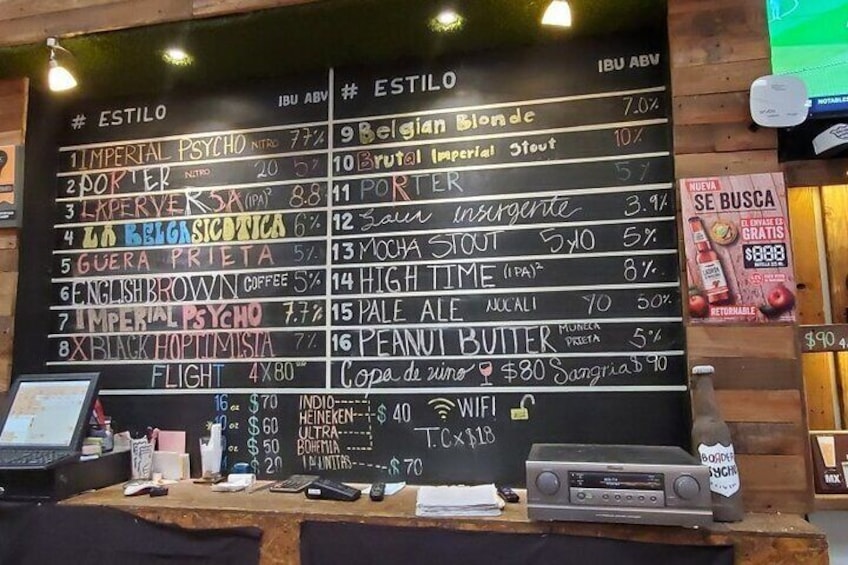 # ESTILO IBU ABV
1 IMPERIAL PSYCHO NITRO 7.7%
2 PORTER NITRO 20 5%
3 LAPERVERSA (IPA)² 8.8
4 LA BELGASICOTICA 6%
5 GÜERA PRIETA 5%
6 ENGLISH BROWN COFFEE 5%
7 IMPERIAL PSYCHO 7.7%
8 X BLACK HOPTIMISTA 7%
FLIGHT 4X80
# ESTILO IBU ABV
9 Belgian Blonde 7.0%
10 Brutal Imperial Stout 10%
11 PORTER 5%
12 insurgente 3.9%
13 MOCHA STOUT 5%
14 HIGH TIME (IPA)² 8%
15 PALE ALE
16 PEANUT BUTTER MUÑECA PRIETA 5%
Copa de vino $80 Sangria $90
16 oz $70
$60
$50
$20
INDIO
HEINEKEN
ULTRA
BOHEMIA
$40
$70
WIFI
T.C x $18
NUEVA
SE BUSCA
EL ENVASE ES
GRATIS
$888
RETURNABLE
NOTABLES
$90
BORDER
PSYCHO
MX